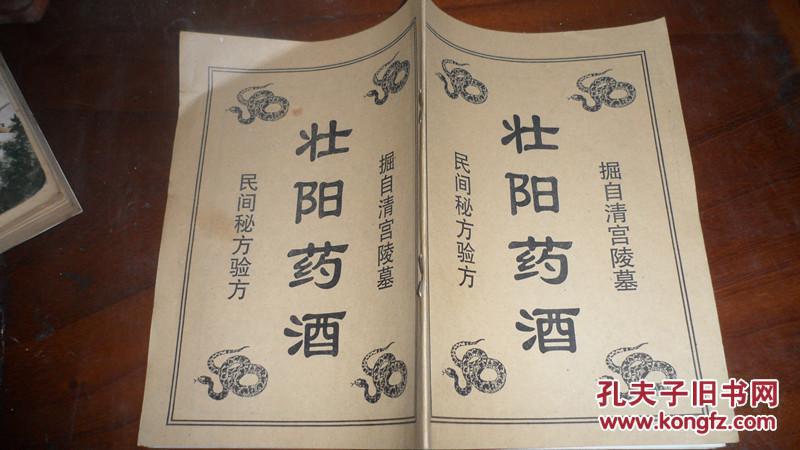 掘自清宫陵墓
壮阳药酒
民间秘方验方
掘自清宫陵墓
壮阳药酒
民间秘方验方
孔夫子旧书网
www.kongfz.com